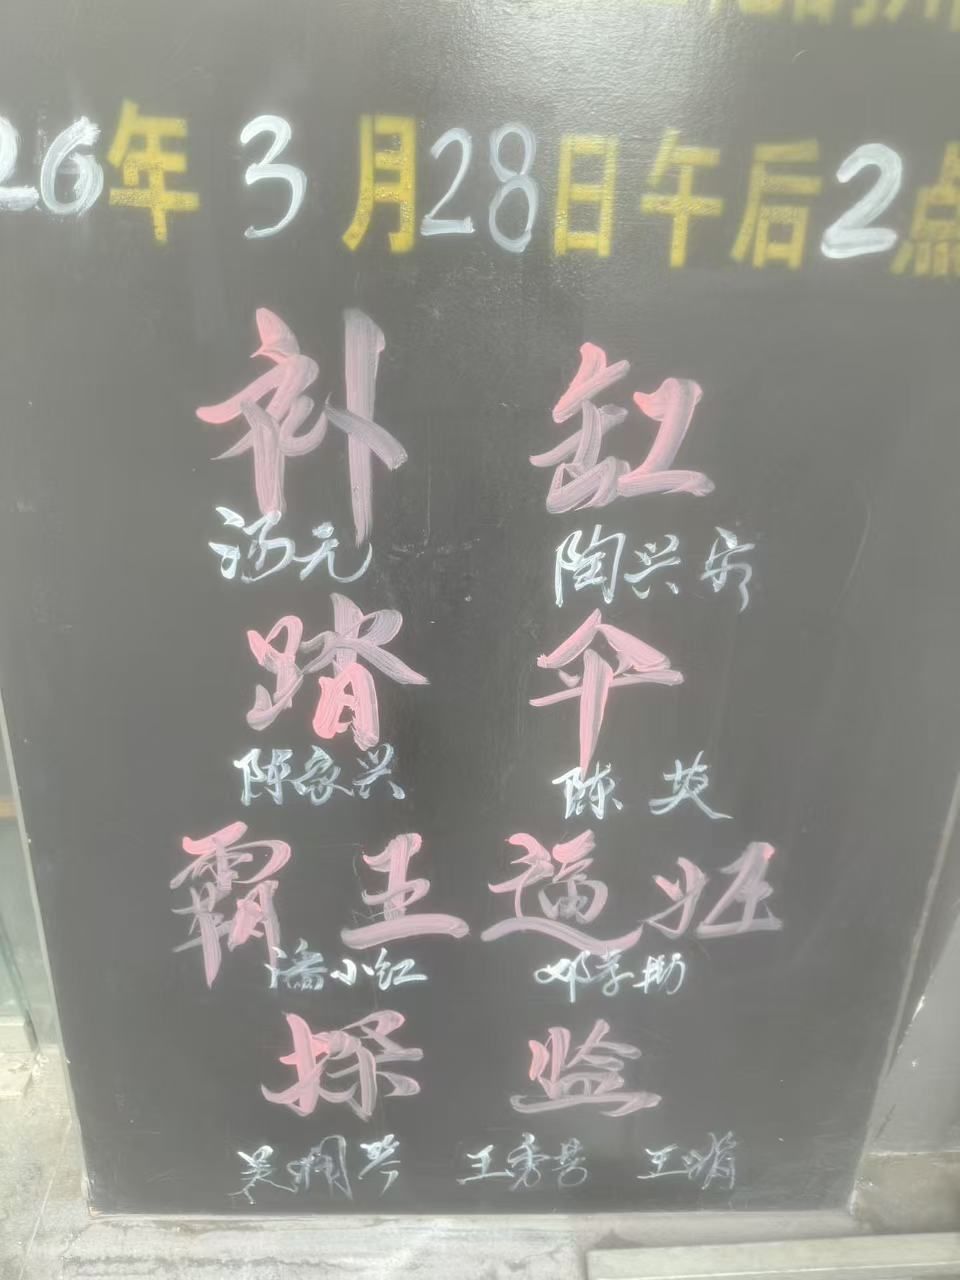 26年3月28日午后2点
补缸
汤元 陶兴安
踏伞
陈家兴 陈英
霸王逼妊
潘小红 邓孝助
探监
吴 琴 王秀芸 王娟